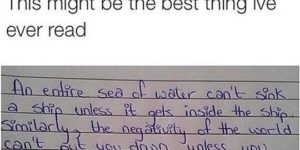 This might be the best thing ive
ever read
An entire sea of water can't sink
a ship unless it gets inside the ship.
Similarly, the negativity of the world
can't put you down unless you